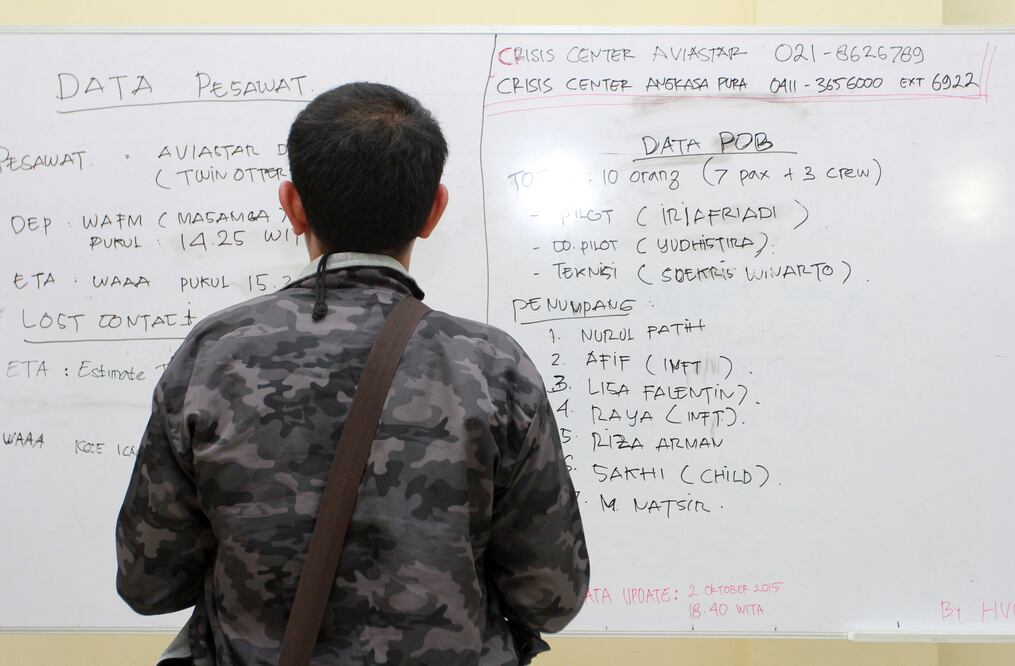 DATA PESAWAT.
PESAWAT : AVIASTAR
(TWIN OTTER
DEP : WAFM (MASAMBA)
PUKUL : 14.25 WIT
ETA : WAAA PUKUL 15.
LOST CONTACT
ETA : Estimate
WAAA KODE
CRISIS CENTER AVIASTAR 021-8626789
CRISIS CENTER ANGKASA PURA 0411-3656000 EXT 6922
DATA POB
TOT : 10 orang (7 pax + 3 crew)
- PILOT (IRIAFRIADI)
- CO.PILOT (YUDHISTIRA).
- TEKNISI (SOEKRIS WINARTO).
PENUMPANG :
1. NURUL FATIH
2. AFIF (INFT).
3. LISA FALENTIN).
4. RAYA (INFT).
5. RIZA ARMAN
6. SAKHI (CHILD).
7. M. NATSIR.
DATA UPDATE: 2 OKTOBER 2015
18.40 WITA
By: HU